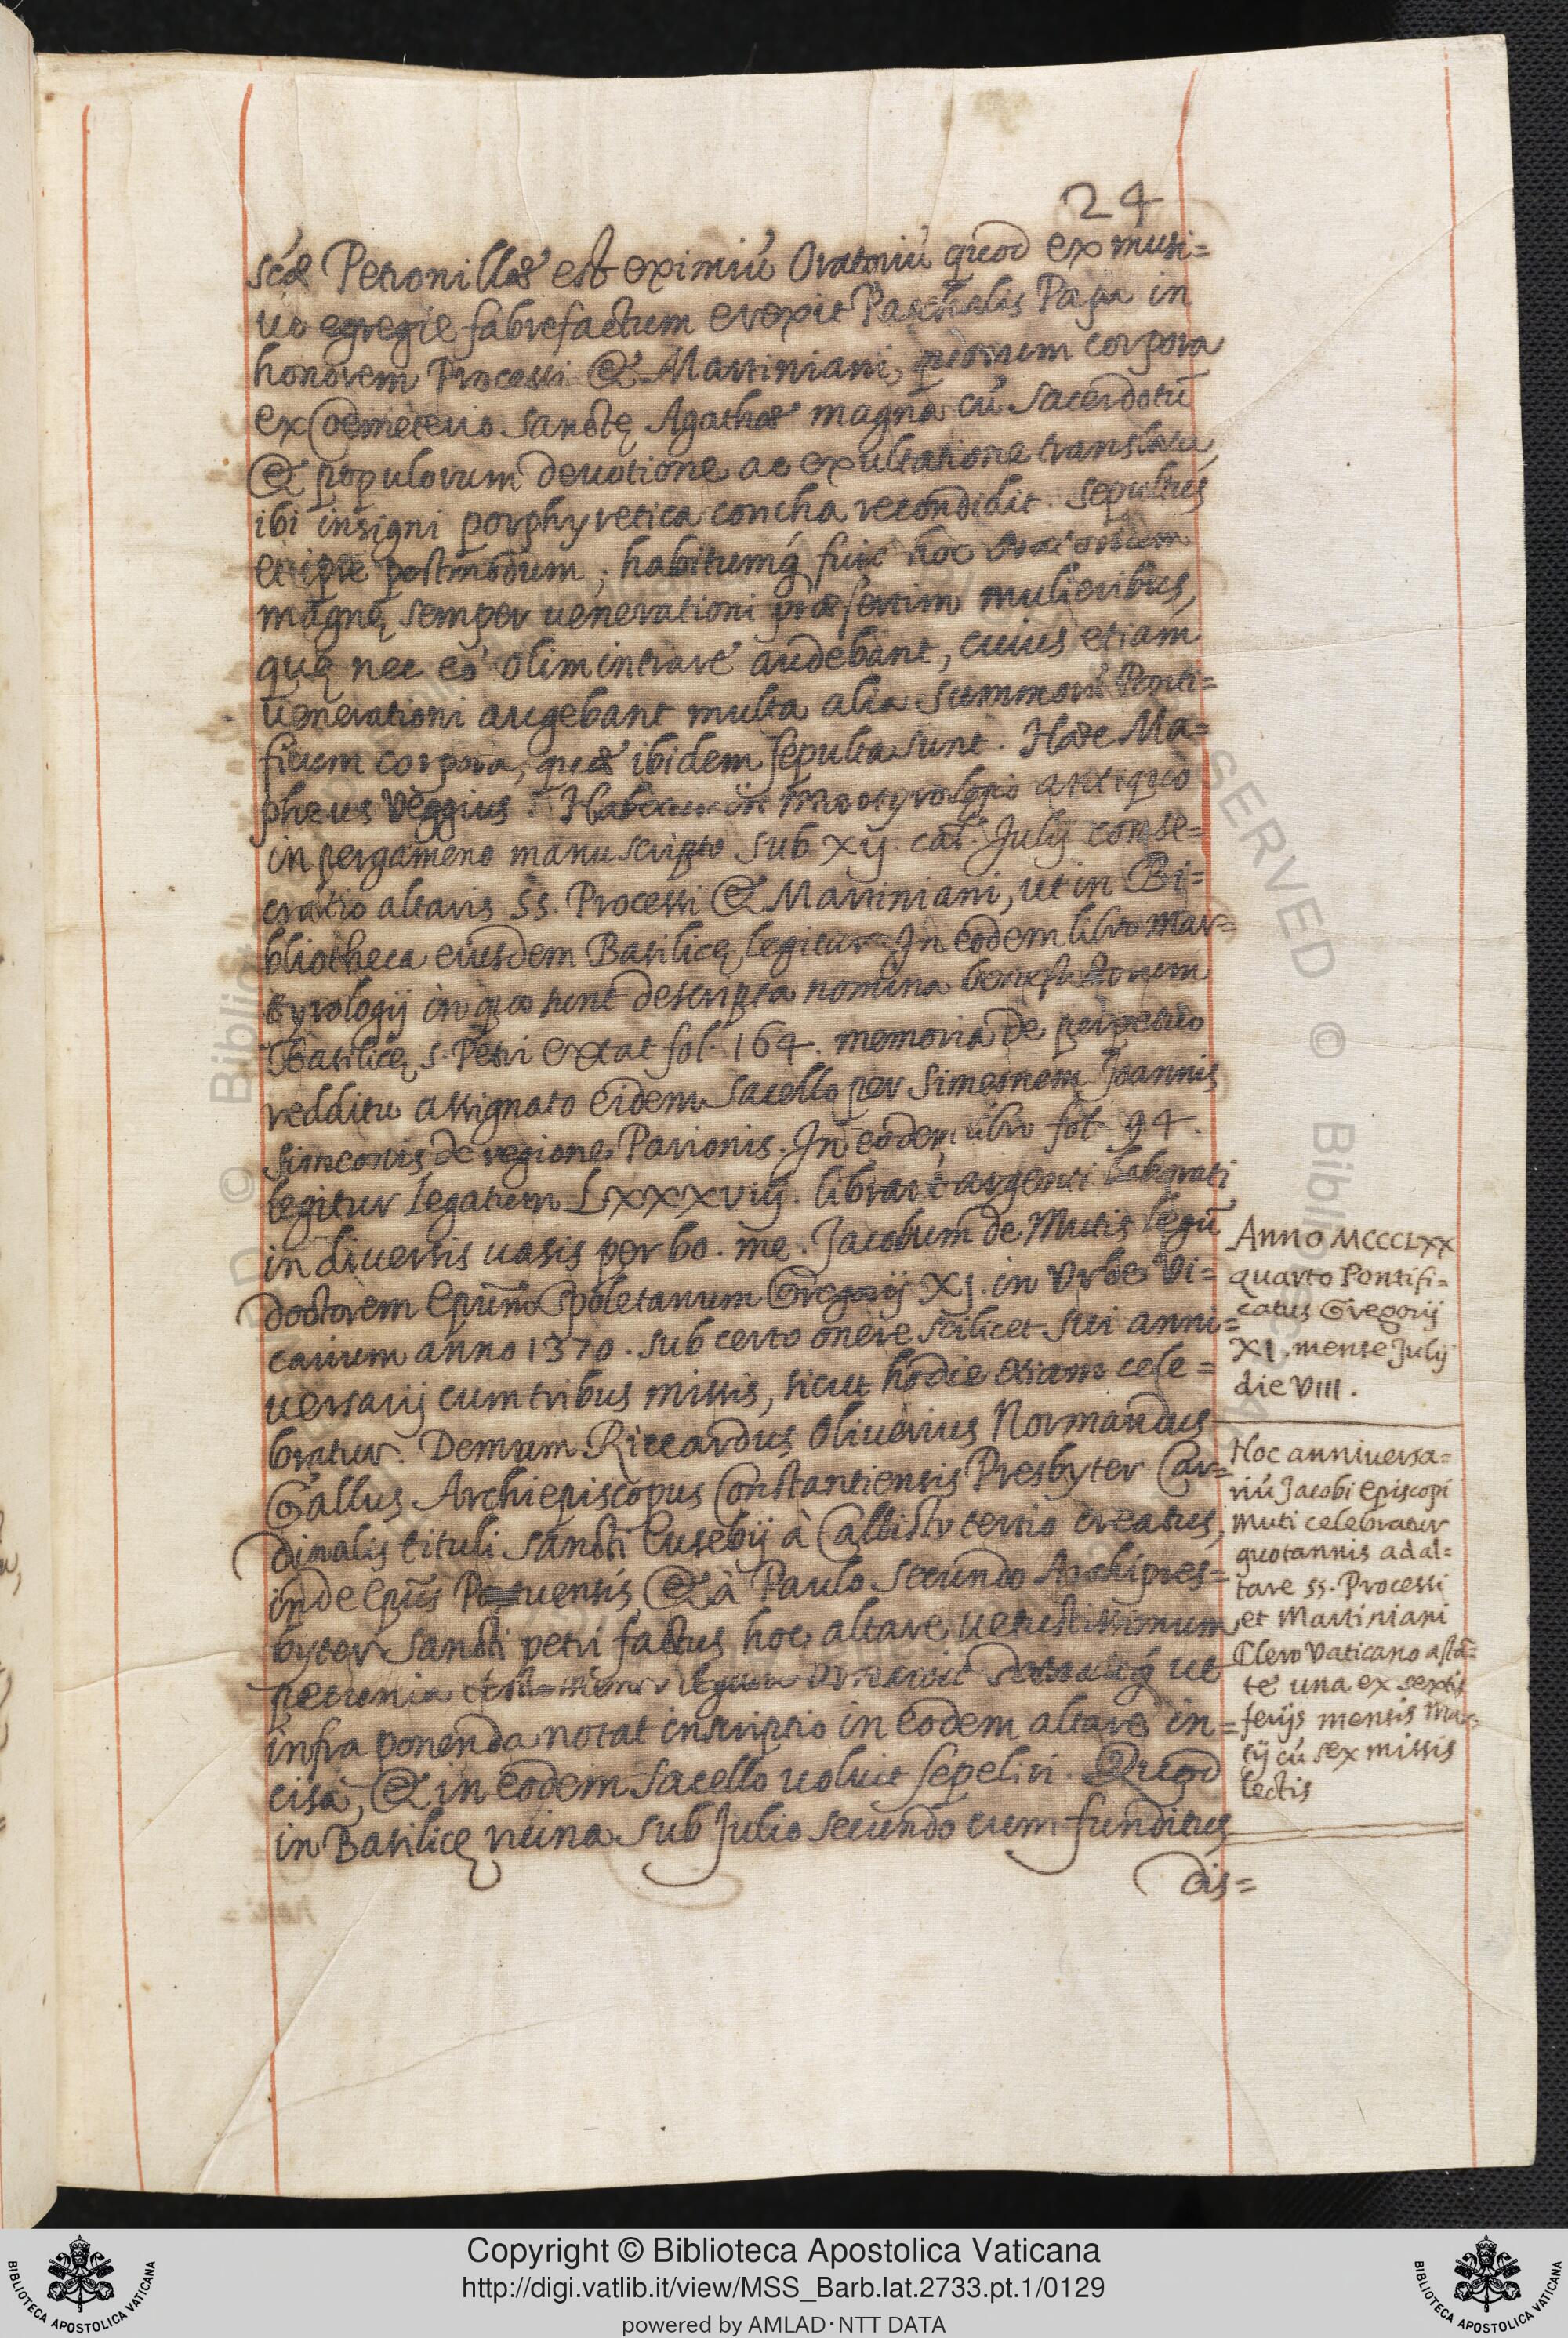 24
scæ Petronillæ est eximiú Oratoriú quod ex musi=
uo egregie fabrefactum erexit Paschalis Papa in
honorem Processi & Martiniani, quorum corpora
ex Coemeterio sanctę Agathæ magna cú sacerdotú
& populorum deuotione ac exultatione translata,
ibi insigni porphyretica concha recondidit. sepultus
et ipse postmodum; habitumq́ fuit hoc oratorium
magnę semper uenerationi præsertim mulieribus,
quę nec eò olim intrare audebant, cuius etiam
uenerationi augebant multa alia summorú Ponti=
ficum corpora, quæ ibidem sepulta sunt. Hæc Ma=
pheus Veggius. Habetur in martyrologio antiquo
in pergameno manuscripto sub xij. cal. Julij conse=
cratio altaris SS. Processi & Martiniani, ut in Bi=
bliotheca eiusdem Basilicę legitur. In eodem libro mar=
tyrologij in quo sunt descripta nomina benefactorum
Basilicę S. Petri extat fol. 164. memoria de perpetuo
redditu assignato eidem sacello per Simeonem Joannis
Simeonis de regione Parionis. In eodem libro fol. 94.
legitur legatum Lxxxviij. librarú argenti laborati
in diuersis uasis per bo. me. Jacobum de Mutis legú
doctorem Epũm Spoletanum Gregorij XJ. in Vrbe Vi=
carium anno 1370. sub certo onere scilicet sui anni=
uersarij cum tribus missis, sicut hodie etiam cele=
bratur. Demum Riccardus Oliuerius Normandus
Gallus Archiepiscopus Constantiensis Presbyter Car=
dinalis tituli sancti Eusebij à Callisto tertio creatus,
inde Epũs Portuensis & à Paulo secundo Archipres=
byter sancti petri factus hoc altare uetustissimum
pecunia ornauit dotauitq́ ut
infra ponenda notat inscriptio in eodem altare in=
cisa, & in eodem sacello uoluit sepeliri. Quod
in Basilicę ruina sub Julio secundo cum funditus
dis=
Anno MCCCLXX
quarto Pontifi=
catus Gregorij
XI. mense Julij
die VIII.
Hoc anniuersa=
riú Jacobi episcopi
Muti celebratur
quotannis ad al=
tare SS. Processi
et Martiniani
Clero Vaticano astã=
te una ex sextis
ferijs mensis Mar=
tij cú sex missis
lectis
Copyright © Biblioteca Apostolica Vaticana
http://digi.vatlib.it/view/MSS_Barb.lat.2733.pt.1/0129
powered by AMLAD·NTT DATA
BIBLIOTECA APOSTOLICA VATICANA
BIBLIOTECA APOSTOLICA VATICANA